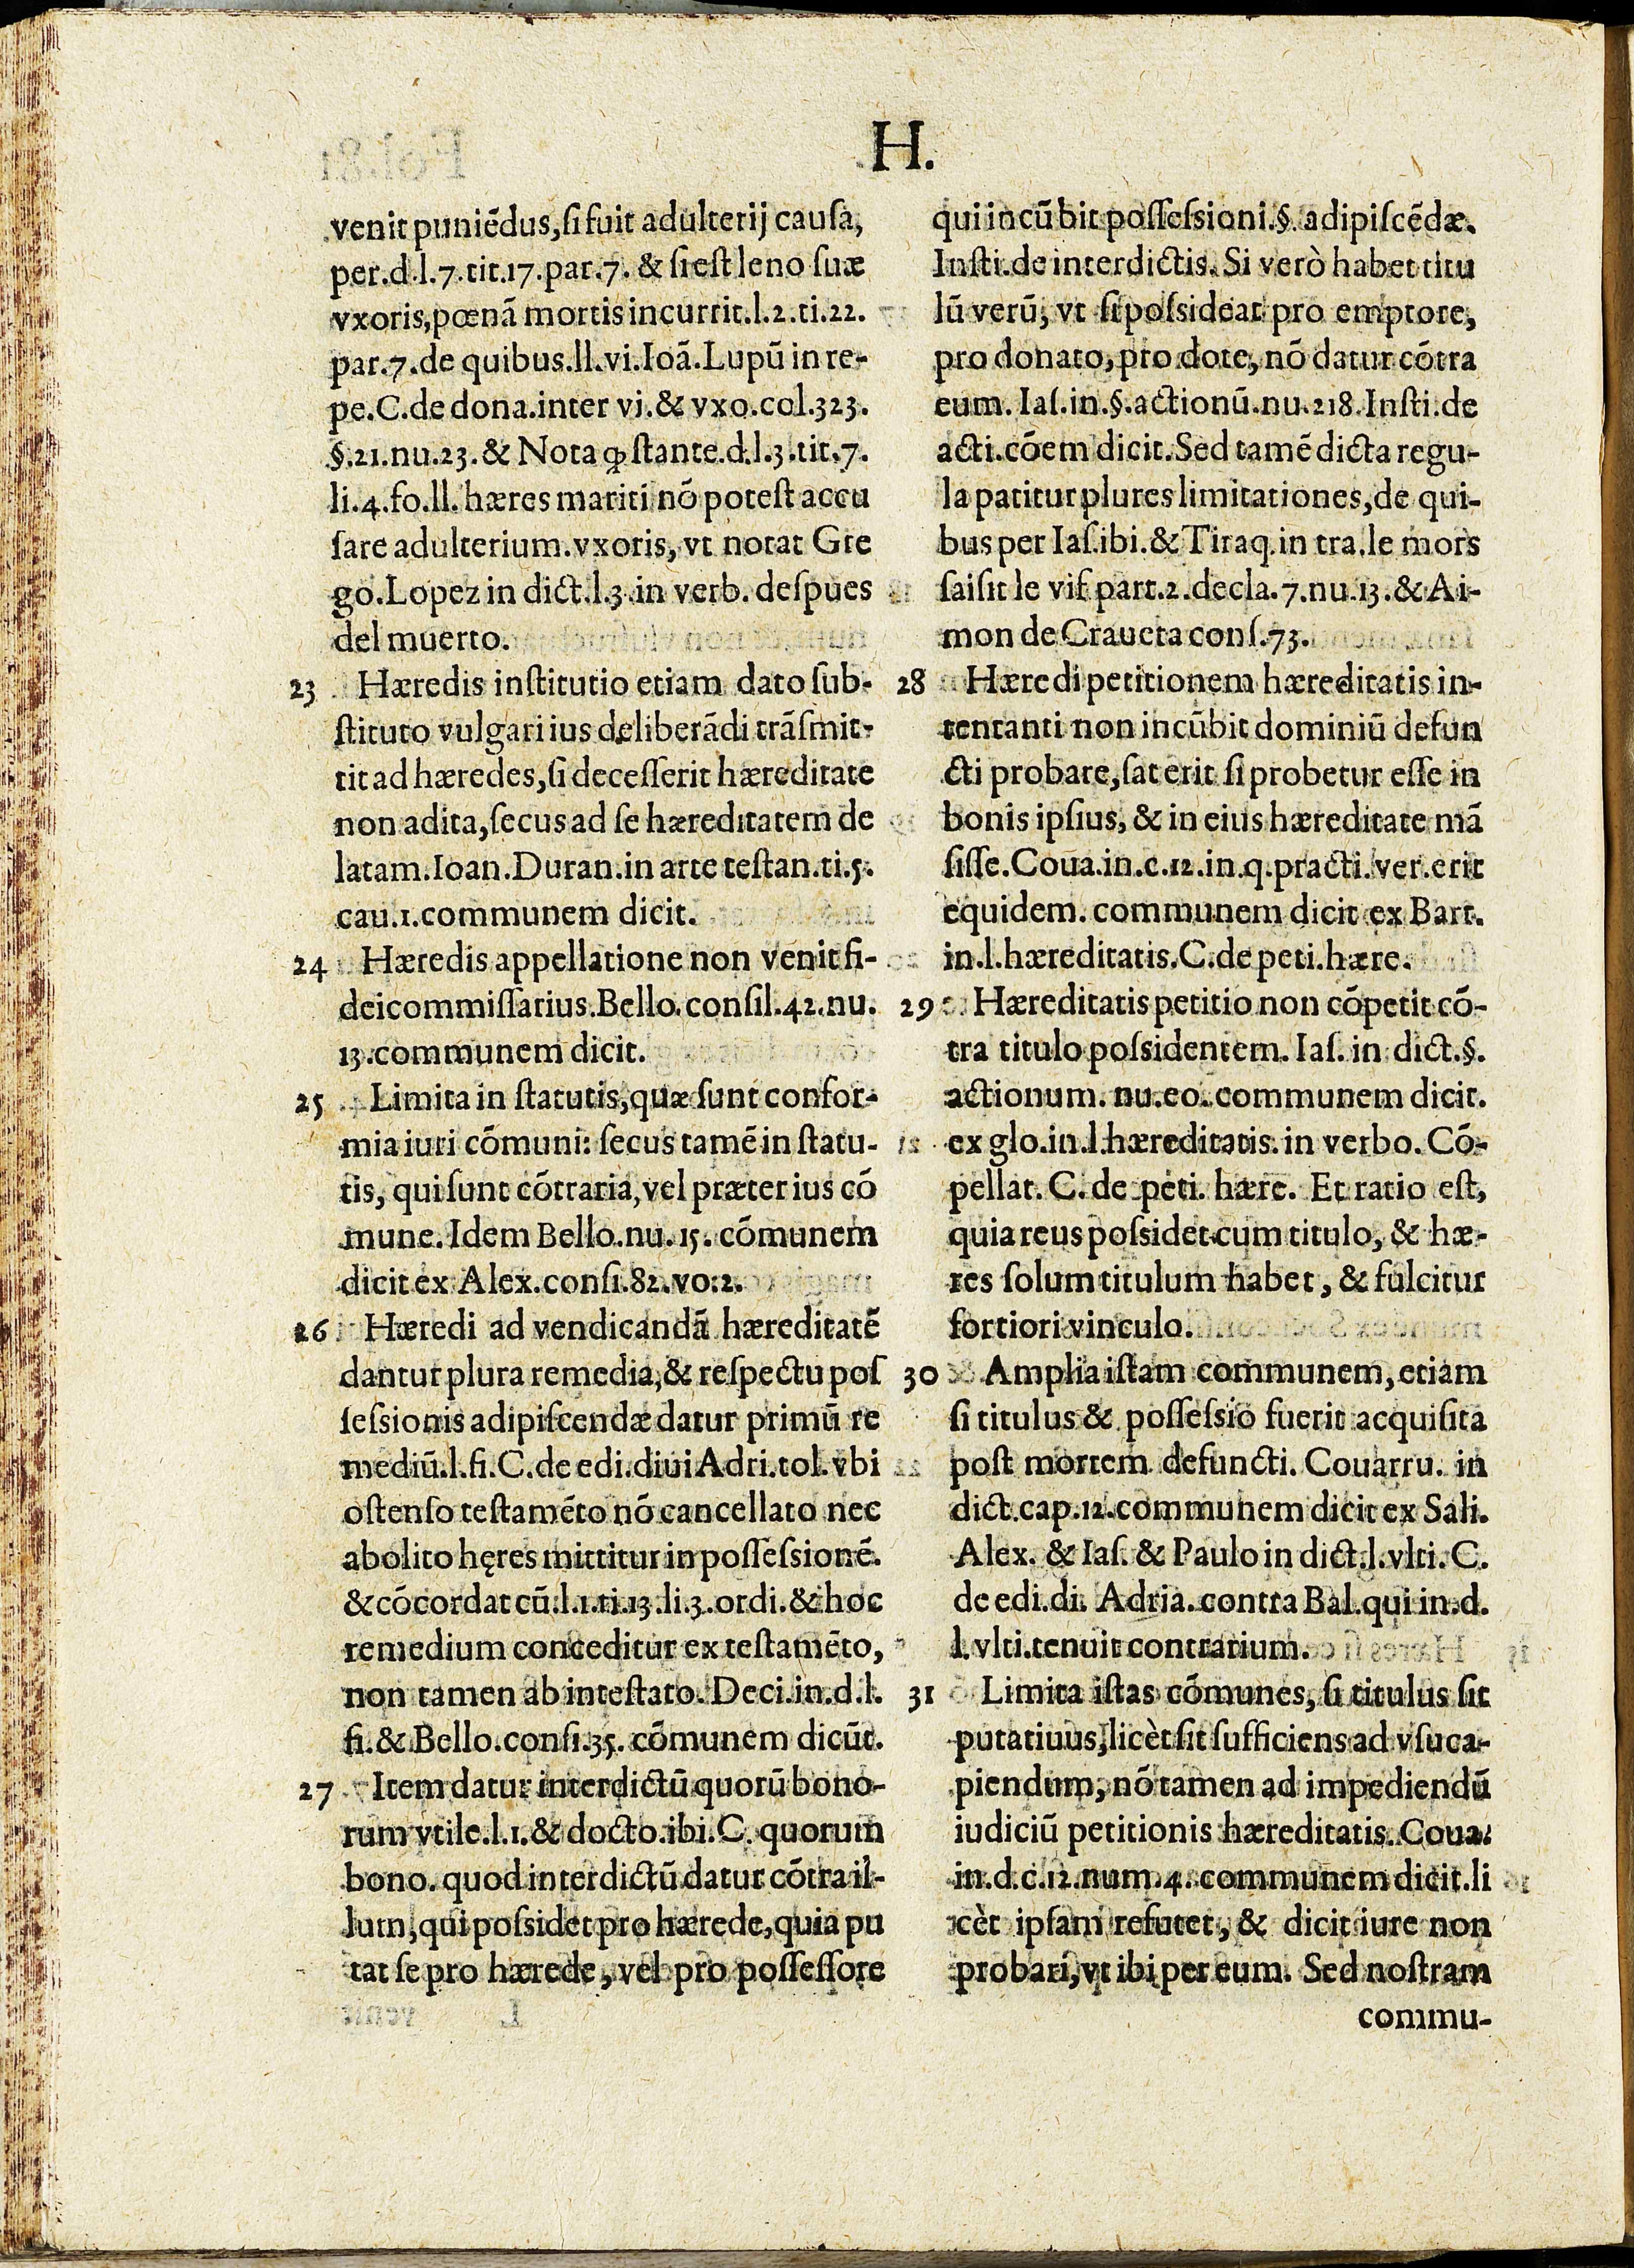 H.
venit puniēdus, ſi fuit adulterij cauſa,
per.d.l.7.tit.17.par.7. & ſi eſt leno ſuæ
vxoris, pœnā mortis incurrit.l.2.ti.22.
par.7.de quibus.ll.vi.Ioā.Lupū in re-
pe.C.de dona.inter vi.& vxo.col.323.
§.21.nu.23.& Nota ꝙ ſtante.d.l.3.tit.7.
li.4.fo.ll.hæres mariti nō poteſt accu
ſare adulterium.vxoris, vt notat Gre
go.Lopez in dict.l.3.in verb. deſpues
del muerto.
23 Hæredis inſtitutio etiam dato ſub-
ſtituto vulgari ius deliberādi trāſmit-
tit ad hæredes, ſi deceſſerit hæreditate
non adita, ſecus ad ſe hæreditatem de
latam.Ioan.Duran.in arte teſtan.ti.5.
cau.1.communem dicit.
24 Hæredis appellatione non venit fi-
deicommiſſarius.Bello.conſil.42.nu.
13.communem dicit.
25 Limita in ſtatutis, quæ ſunt confor-
mia iuri cōmuni: ſecus tamē in ſtatu-
tis, qui ſunt cōtraria, vel præter ius cō
mune. Idem Bello.nu.15. cōmunem
dicit ex Alex.conſi.82.vo.2.
26 Hæredi ad vendicandā hæreditatē
dantur plura remedia, & reſpectu poſ
ſeſsionis adipiſcendæ datur primū re
mediū.l.fi.C.de edi.diui Adri.tol.vbi
oſtenſo teſtamēto nō cancellato nec
abolito hęres mittitur in poſſeſsionē.
& cōcordat cū.l.1.ti.13.li.3.ordi.& hoc
remedium conceditur ex teſtamēto,
non tamen ab inteſtato. Deci.in.d.l.
fi.& Bello.conſi.35. cōmunem dicūt.
27 Item datur interdictū quorū bono-
rum vtile.l.1.& docto.ibi.C. quorum
bono. quod interdictū datur cōtra il-
lum, qui poſsidet pro hærede, quia pu
tat ſe pro hærede, vel pro poſſeſſore
qui incūbit poſſeſsioni.§. adipiſcēdæ.
Inſti.de interdictis. Si verò habet titu
lū verū, vt ſi poſsideat pro emptore,
pro donato, pro dote, nō datur cōtra
eum. Iaſ.in.§.actionū.nu.218.Inſti.de
acti.cōem dicit.Sed tamē dicta regu-
la patitur plures limitationes, de qui-
bus per Iaſ.ibi.& Tiraq.in tra.le mors
ſaiſit le vif part.2.decla.7.nu.13.& Ai-
mon de Craueta conſ.73.
28 Hæredi petitionem hæreditatis in-
tentanti non incūbit dominiū defun
cti probare, ſat erit ſi probetur eſſe in
bonis ipſius, & in eius hæreditate mā
ſiſſe.Coua.in.c.12.in.q.practi.ver.erit
equidem. communem dicit ex Bart.
in.l.hæreditatis.C.de peti.hære.
29 Hæreditatis petitio non cōpetit cō-
tra titulo poſsidentem. Iaſ. in dict.§.
actionum. nu.eo.communem dicit.
ex glo.in.l.hæreditatis. in verbo. Cō-
pellat. C. de peti. hære. Et ratio eſt,
quia reus poſsidet cum titulo, & hæ-
res ſolum titulum habet, & fulcitur
fortiori vinculo.
30 Amplia iſtam communem, etiam
ſi titulus & poſſeſsio fuerit acquiſita
poſt mortem defuncti. Couarru. in
dict.cap.12.communem dicit ex Sali.
Alex. & Iaſ. & Paulo in dict.l.vlti. C.
de edi.di. Adria.contra Bal.qui in.d.
l.vlti.tenuit contrarium.
31 Limita iſtas cōmunes, ſi titulus ſit
putatiuus, licèt ſit ſufficiens ad vſuca-
piendum, nō tamen ad impediendū
iudiciū petitionis hæreditatis. Coua.
in.d.c.12.num.4. communem dicit.li
cèt ipſam refutet, & dicit iure non
probari, vt ibi per eum. Sed noſtram
commu-